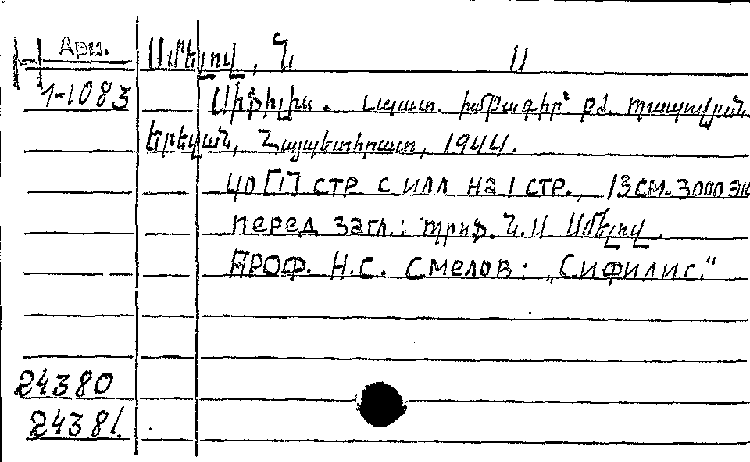 Арм. Սմելով, Ն Ս
1-1083 Սիֆիլիս. Պատ. խմբագիր՝ բժ.
Երեվան, Հայպետհրատ, 1944.
40 [1] стр с илл на 1 стр., 13 см. 3000 эк
перед загл.: պրոֆ. Ն. Ս Սմելով.
ПРОФ. Н.С. Смелов: „Сифилис."
24380
24381.